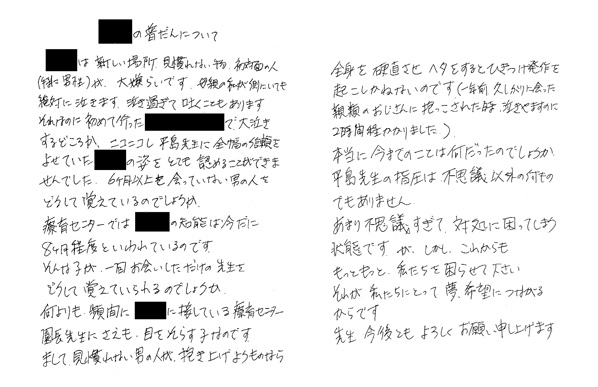 の普だんについて
は 新しい場所 見慣れない物、初対面の人
(特に男性)が、大嫌らいです。母親の私が側にいても
絶対に泣きます。泣き過ぎて吐くこともあります
それなのに初めて行った で大泣き
するどころか、ニコニコし 平島先生に全幅の信頼を
よせていた の姿を とても 認めることができま
せんでした。6ヶ月以上も会っていない男の人を
どうして覚えているのでしょうか。
療育センターでは の知能は今だに
8ヶ月程度といわれているのです
そんな子が、一回お会いしただけの先生を
どうして覚えていられるのでしょうか。
何よりも、頻繁に に接している療育センター
園長先生にさえも、目をそらす子なのです
まして、見慣れない男の人が、抱き上げようものなら
全身を硬直させ ヘタをするとひきつけ発作を
起こしかねないのです(一年前 久しぶりに会った
親類のおじさんに抱っこされた時、泣きやますのに
2時間程かかりました)。
本当に今までのことは何だったのでしょうか
平島先生の指圧は不思議以外の何もの
でもありません
あまり不思議すぎて、対処に困ってしまう
状態です が、しかし、これからも
もっともっと、私たちを困らせて下さい
それが 私たちにとって 夢、希望につながる
からです
先生 今後とも よろしく お願い申し上げます